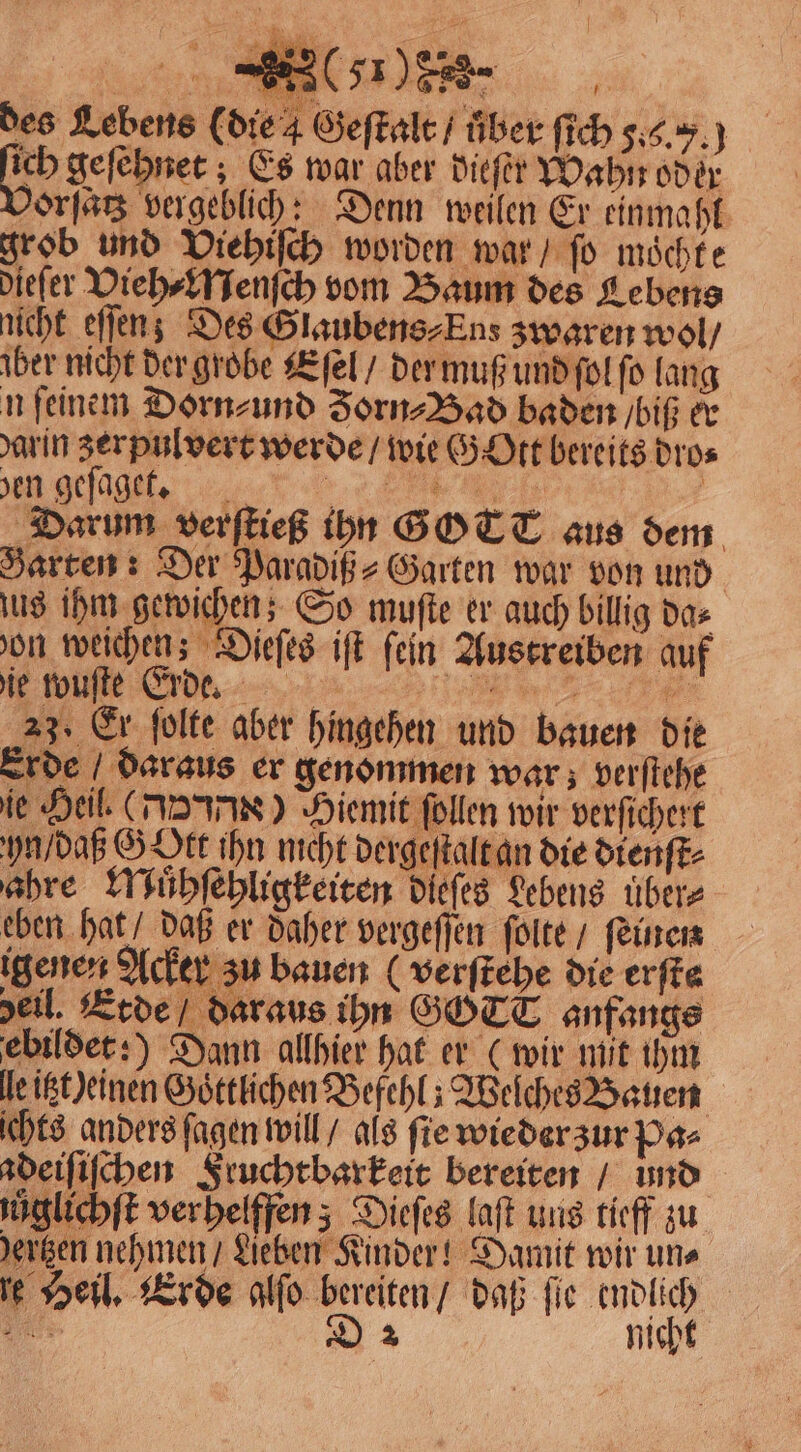 (51)
des Lebens (die 4 Geſtalt / uͤber ſich 5.6.7.)
ſich geſehnet; Es war aber dieſer Wahn oder
Vorſatz vergeblich: Denn weilen Er einmahl
grob und Viehiſch worden war / ſo moͤchte
dieſer Vieh-Menſch vom Baum des Lebens
nicht eſſen; Des Glaubens-Ens zwaren wol /
aber nicht der grobe Eſel / der muß und ſol ſo lang
n ſeinem Dorn-und Zorn-Bad baden / biß er
darin zerpulvert werde / wie GOtt bereits dro-
ben geſaget.
Darum verſtieß ihn GOTT aus dem
Garten: Der Paradiß-Garten war von und
aus ihm gewichen; So muſte er auch billig da-
von weichen; Dieſes iſt ſein Austreiben auf
die wuſte Erde.
23. Er ſolte aber hingehen und bauen die
Erde / daraus er genommen war; verſtehe
ie Heil. Hiemit ſollen wir verſichert
yn / daß GOtt ihn nicht dergeſtalt an die dienſt-
ahre Muͤhſehligkeiten dieſes Lebens uͤber-
eben hat / daß er daher vergeſſen ſolte / ſeinen
igenen Acker zu bauen (verſtehe die erſte
heil. Erde / daraus ihn GOTT anfangs
ebildet:) Dann allhier hat er (wir mit ihm
lle itzt) einen Goͤttlichen Befehl; Welches Bauen
ichts anders ſagen will / als ſie wieder zur Pa-
adeiſiſchen Fruchtbarkeit bereiten / und
uͤglichſt verhelffen; Dieſes laſt uns tieff zu
Hertzen nehmen / Lieben Kinder! Damit wir un-
re Heil. Erde alſo bereiten / daß ſie endlich
D 2 nicht